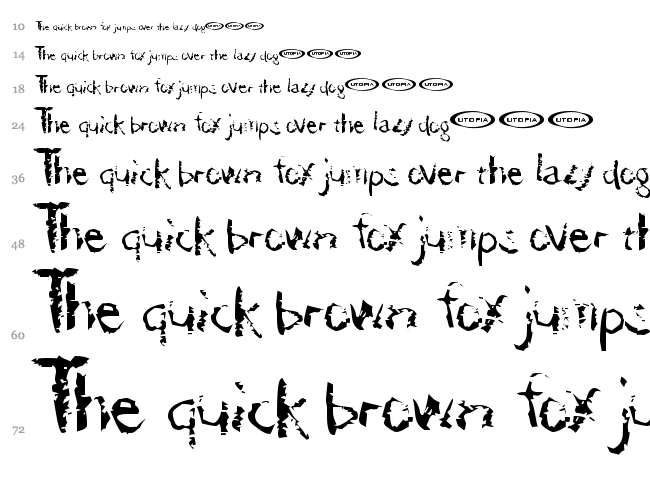 10 The quick brown fox jumps over the lazy dog UTOPIA UTOPIA UTOPIA
14 The quick brown fox jumps over the lazy dog UTOPIA UTOPIA UTOPIA
18 The quick brown fox jumps over the lazy dog UTOPIA UTOPIA UTOPIA
24 The quick brown fox jumps over the lazy dog UTOPIA UTOPIA UTOPIA
36 The quick brown fox jumps over the lazy dog
48 The quick brown fox jumps over th
60 The quick brown fox jumps
72 The quick brown fox ju